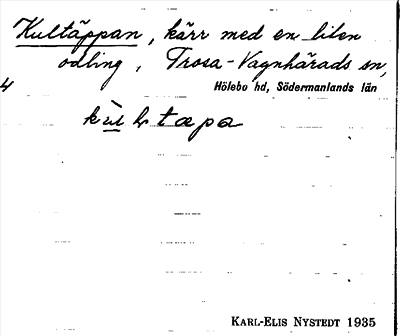 Kultäppan, kärr med en liten
odling, Trosa-Vagnhärads sn,
4 Hölebo hd, Södermanlands län
KARL-ELIS NYSTEDT 1935